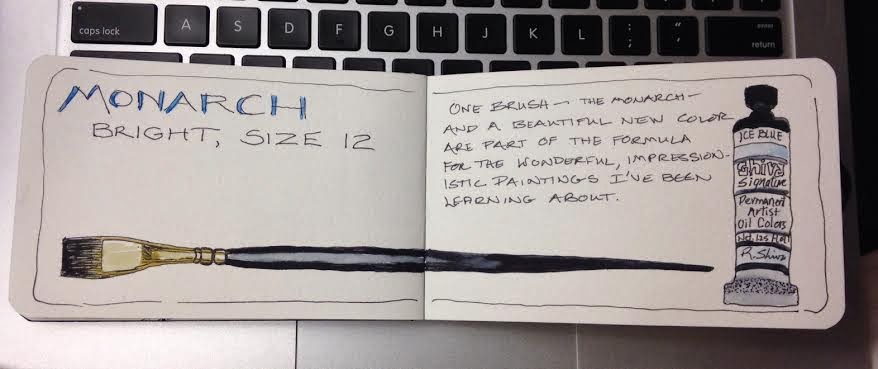 caps lock
A
S
D
F
G
H
J
K
L
:
;
"
'
enter
return
MONARCH
BRIGHT, SIZE 12
ONE BRUSH — THE MONARCH —
AND A BEAUTIFUL NEW COLOR
ARE PART OF THE FORMULA
FOR THE WONDERFUL, IMPRESSION-
ISTIC PAINTINGS I'VE BEEN
LEARNING ABOUT.
ICE BLUE
Shiva
Signature
Permanent
Artist
Oil Colors
R. Shiva